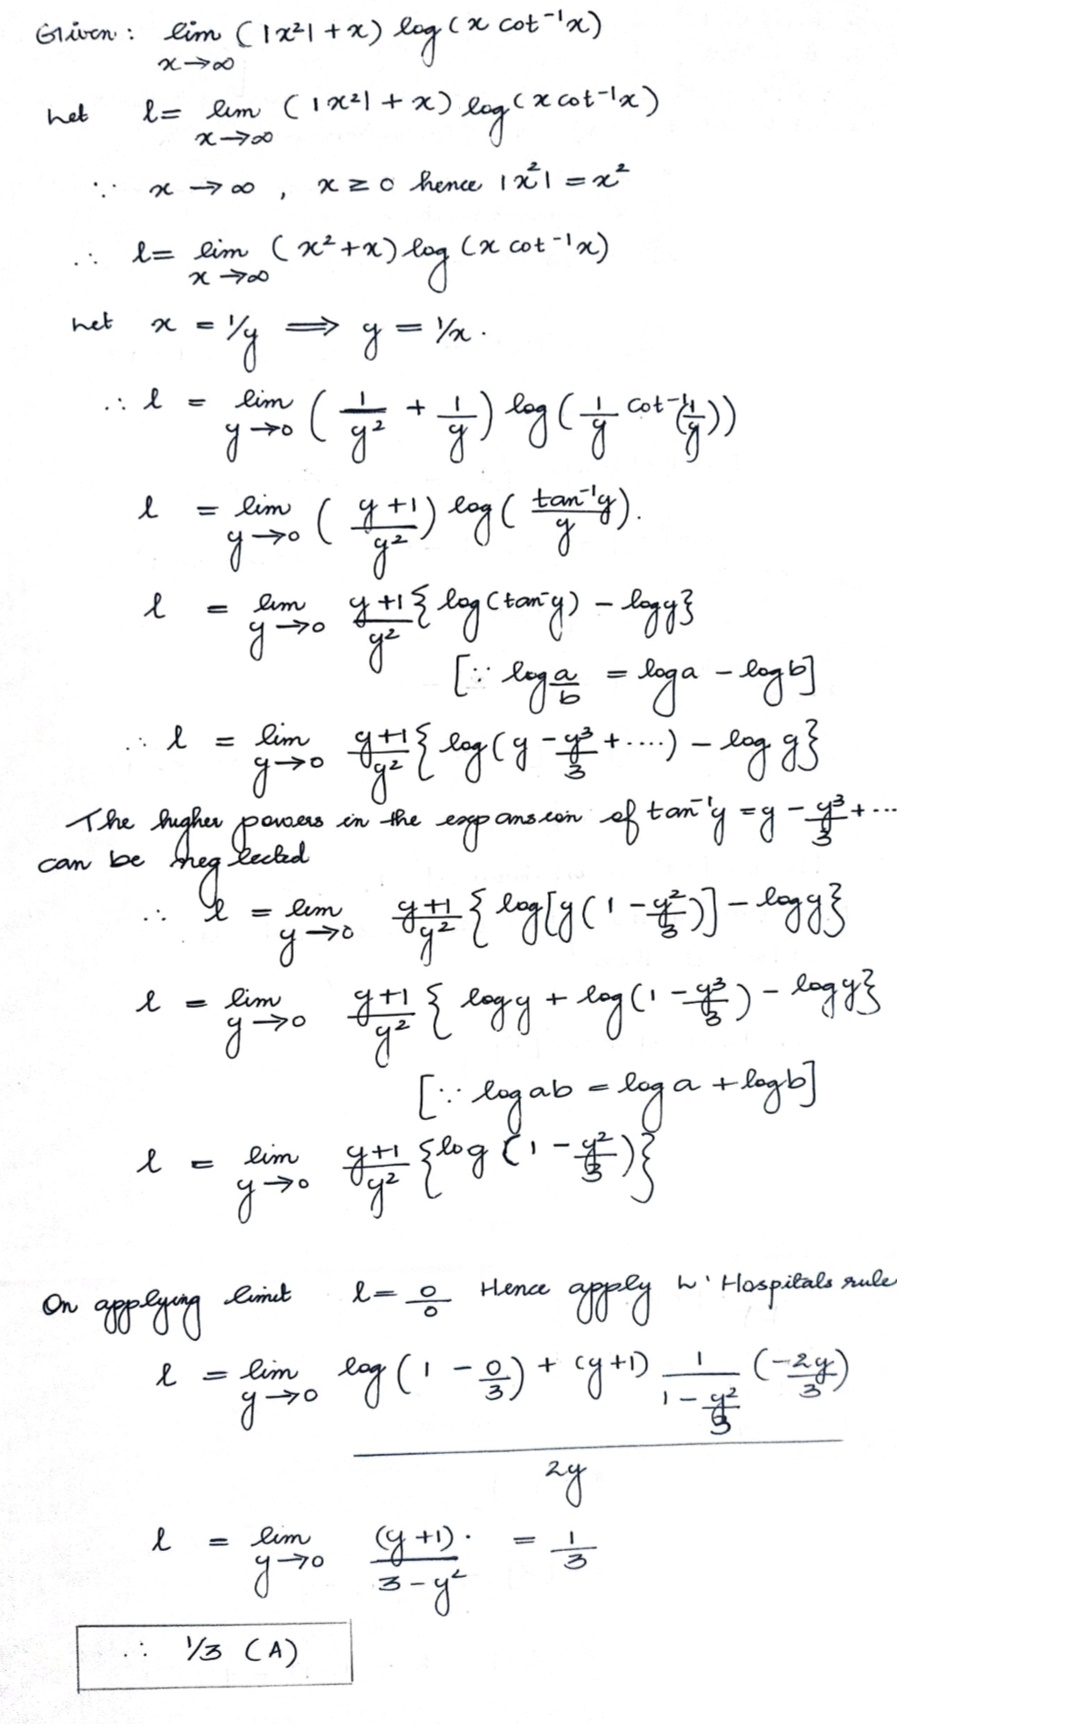 Given : lim (|x²|+x) log(x cot⁻¹x)
x→∞
Let l= lim (|x²|+x) log(x cot⁻¹x)
x→∞
∵ x→∞ , x≥0 hence |x²| = x²
∴ l= lim (x²+x) log (x cot⁻¹x)
x→∞
Let x = 1/y ⟹ y = 1/x.
∴ l = lim y→0 (1/y² + 1/y) log(1/y cot⁻¹(1/y))
l = lim y→0 (y+1/y²) log(tan⁻¹y/y).
l = lim y→0 y+1/y² {log(tan⁻y) - logy}
[∵ log a/b = loga - logb]
∴ l = lim y→0 y+1/y² {log(y - y³/3 + ....) - log y}
The higher powers in the expansion of tan⁻¹y = y - y³/3 + ...
can be neglected
∴ l = lim y→0 y+1/y² {log[y(1 - y²/3)] - logy}
l = lim y→0 y+1/y² {logy + log(1 - y³/3) - logy}
[∵ logab = log a + logb]
l = lim y→0 y+1/y² {log (1 - y²/3)}
On applying limit l = 0/0 Hence apply L' Hospitals rule
l = lim y→0 log (1 - 0/3) + (y+1) 1/1 - y²/3 (-2y/3)
2y
l = lim y→0 (y+1)./3-y² = 1/3
∴ 1/3 (A)